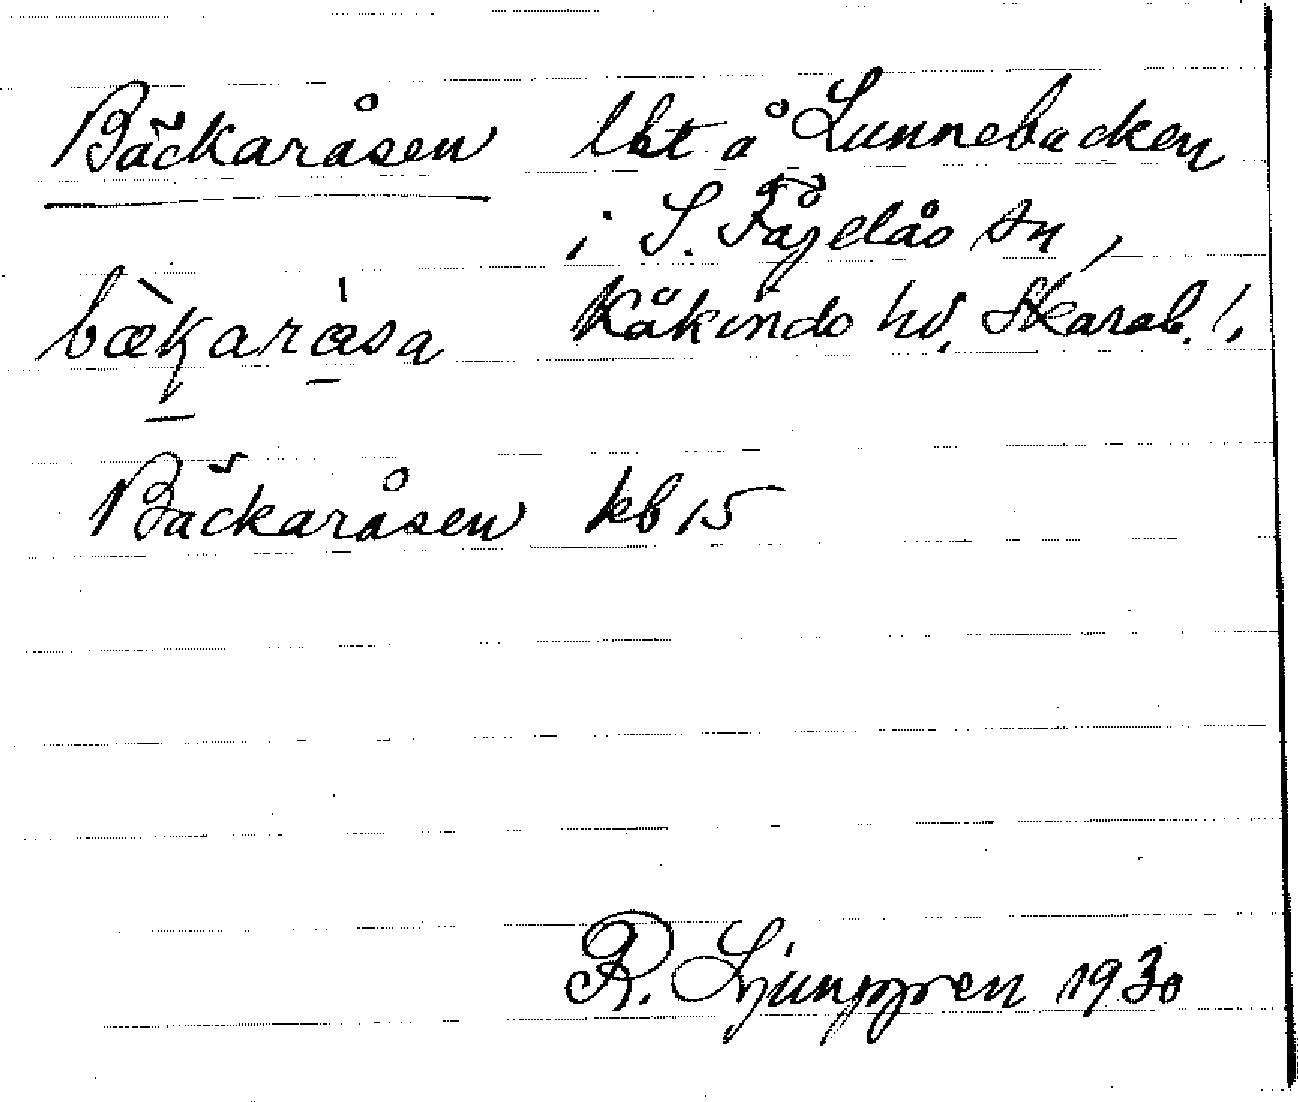 Bäckaråsen lht å Lunnebacken
i S. Fågelås sn,
bækaråsa Kåkinds hd. Skarab. l.
Bäckaråsen kb 15
R. Ljunggren 1930